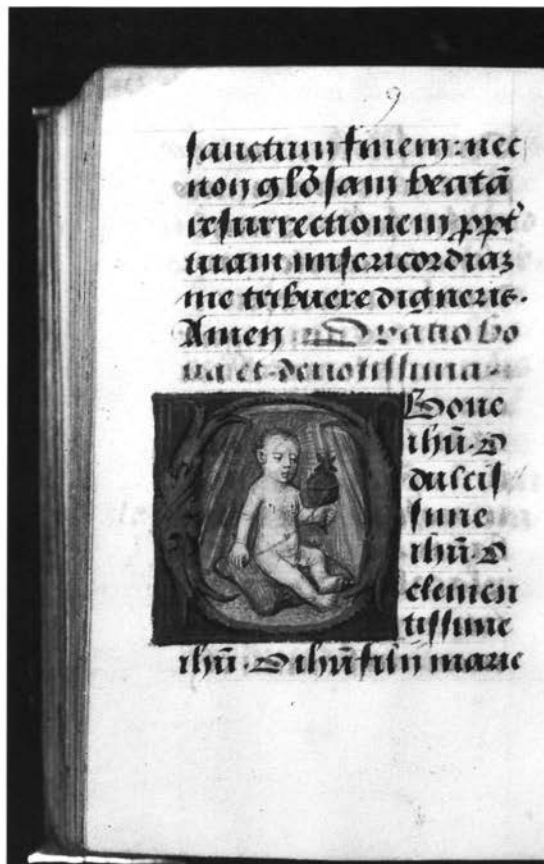 9
sanctum finem: nec
non glōsam beatā
resurrectionem ꝓpt
tuam misericordiaꝫ
me tribuere digneris.
Amen Oratio bo
na et deuotissima.
O Bone
ihū. O
dulcis
sime
ihū. O
clemen
tissime
ihū. O ihū filij marie